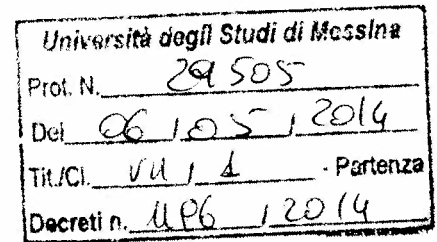 Università degli Studi di Messina
Prot. N. 29505
Del 06 / 05 / 2014
Tit./Cl. VII / 1 - Partenza
Decreti n. 1196 / 2014